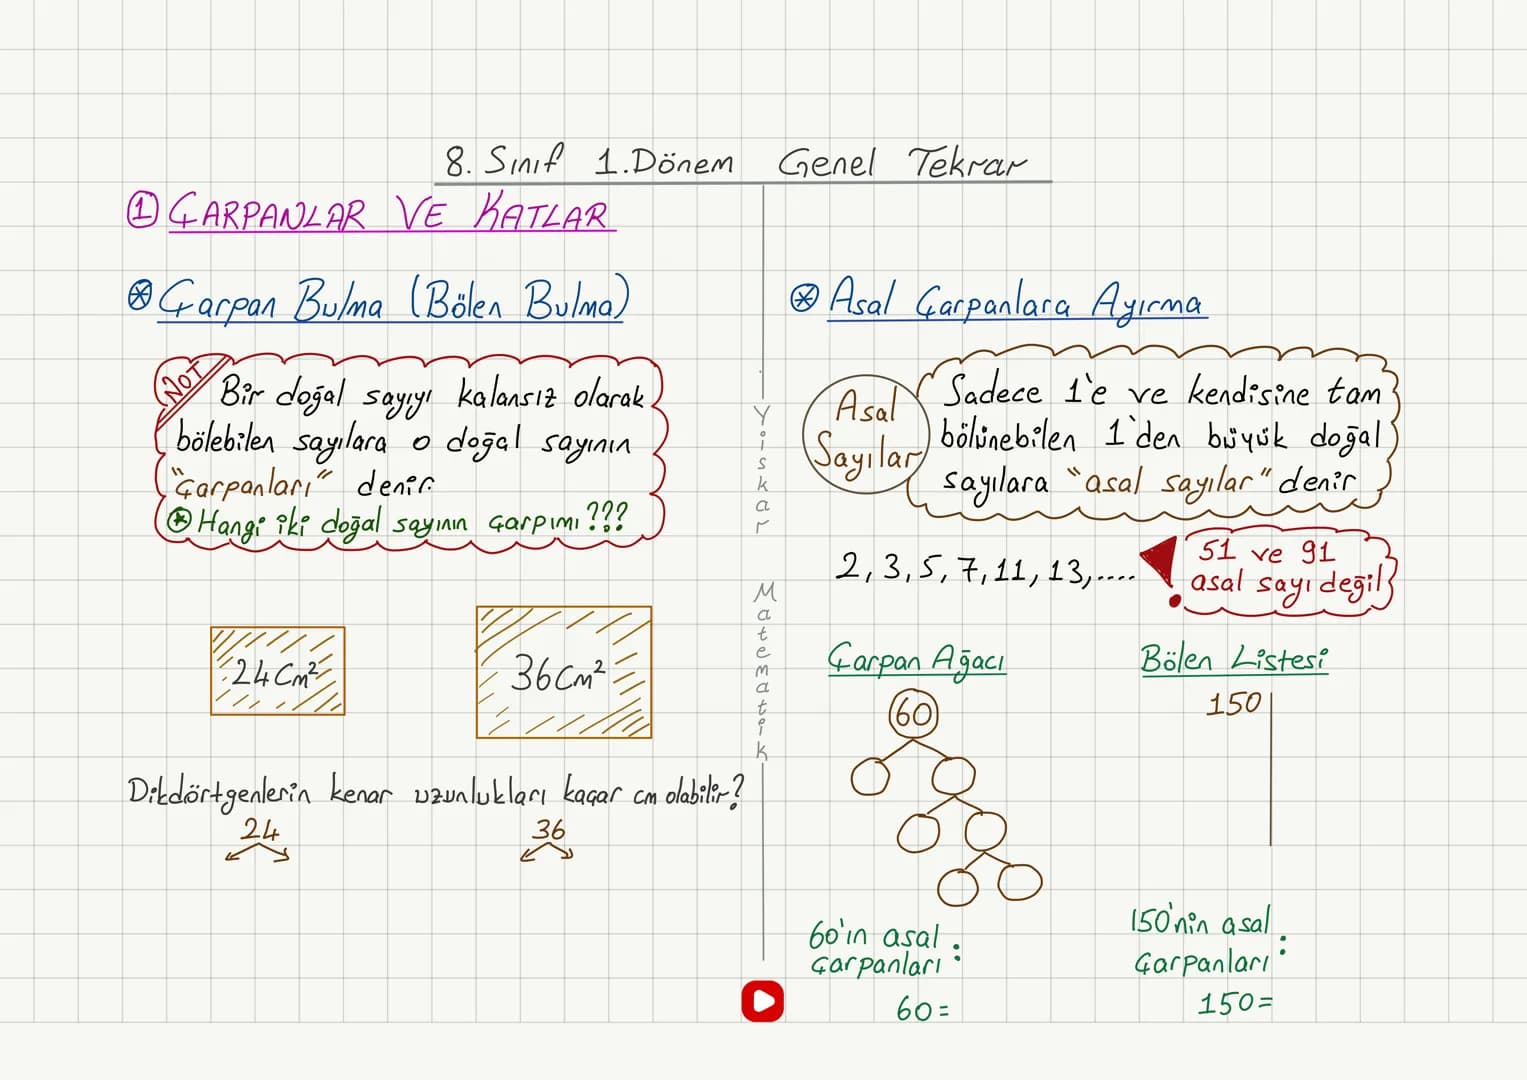 8. Sınıf 1.Dönem Genel Tekrar
① ÇARPANLAR VE KATLAR
⊛ Çarpan Bulma (Bölen Bulma)
NOT
Bir doğal sayıyı kalansız olarak
bölebilen sayılara o doğal sayının
"çarpanları" denir.
⊛ Hangi iki doğal sayının çarpımı???
24 Cm²
36 Cm²
Dikdörtgenlerin kenar uzunlukları kaçar cm olabilir?
24
36
Yiskar Matematik
⊛ Asal Çarpanlara Ayırma
Asal
Sayılar
Sadece 1'e ve kendisine tam
bölünebilen 1'den büyük doğal
sayılara "asal sayılar" denir
2, 3, 5, 7, 11, 13, ....
51 ve 91
asal sayı değil
Çarpan Ağacı
60
60'ın asal
çarpanları :
60=
Bölen Listesi
150
150'nin asal
çarpanları :
150=